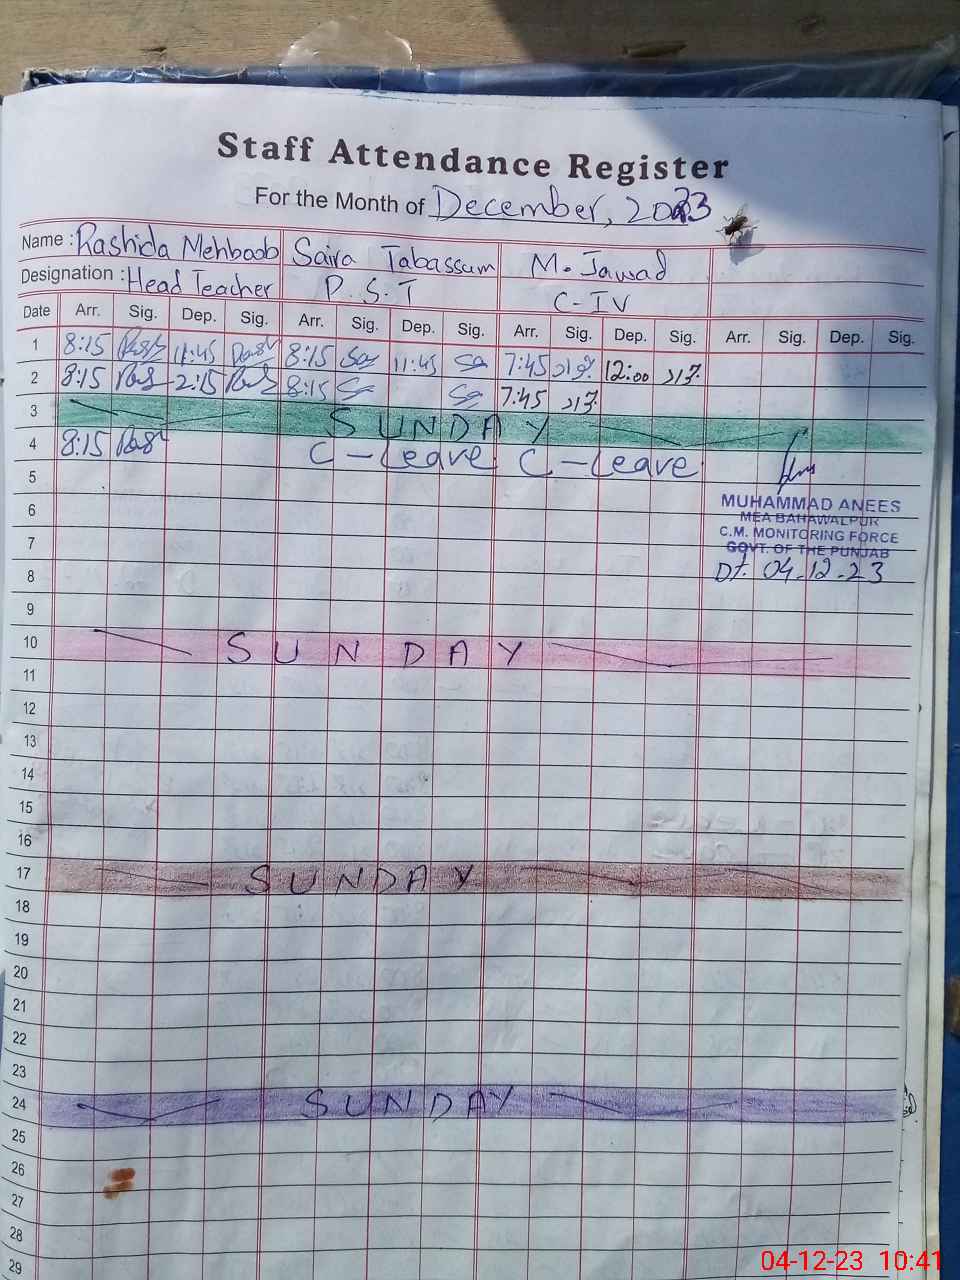 Staff Attendance Register
For the Month of December, 2023
Name : Rashida Mehboob Saira Tabassum M. Jawad
Designation : Head Teacher P.S.T C-IV
Date Arr. Sig. Dep. Sig. Arr. Sig. Dep. Sig. Arr. Sig. Dep. Sig. Arr. Sig. Dep. Sig.
1 8:15 11:45 8:15 11:45 7:45 12:00
2 8:15 2:15 8:15 7:45
3 SUNDAY
4 8:15 C-Leave C-Leave
5
6 MUHAMMAD ANEES
MEA BAHAWALPUR
7 C.M. MONITORING FORCE
GOVT. OF THE PUNJAB
8 Dt. 04-12-23
9
10 SUNDAY
11
12
13
14
15
16
17 SUNDAY
18
19
20
21
22
23
24 SUNDAY
25
26
27
28
29
04-12-23 10:41